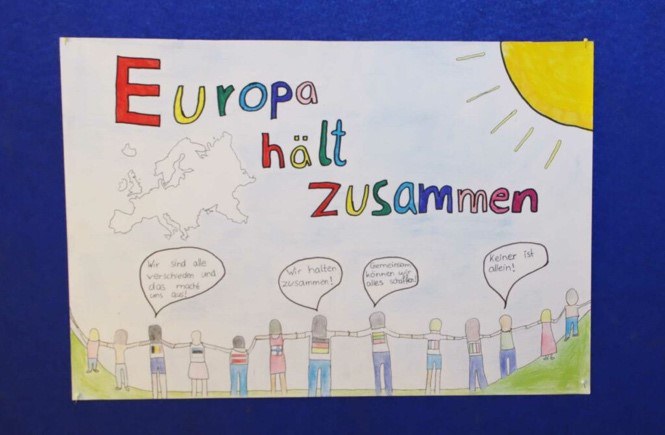 Europa
hält
zusammen
Wir sind alle
verschieden und
das macht
uns aus!
Wir halten
zusammen!
Gemeinsam
können wir
alles schaffen!
Keiner ist
allein!